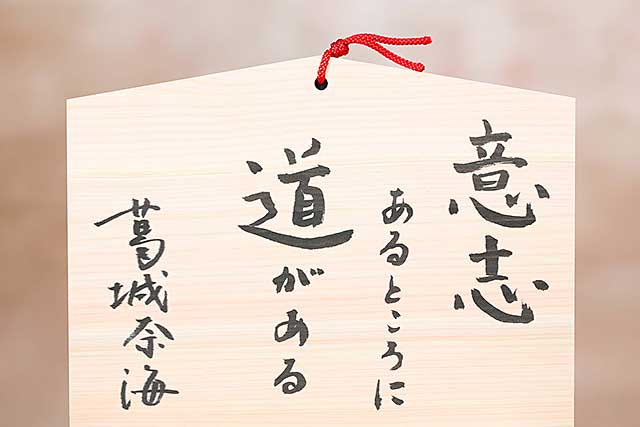 意志
あるところに
道がある
葛城奈海